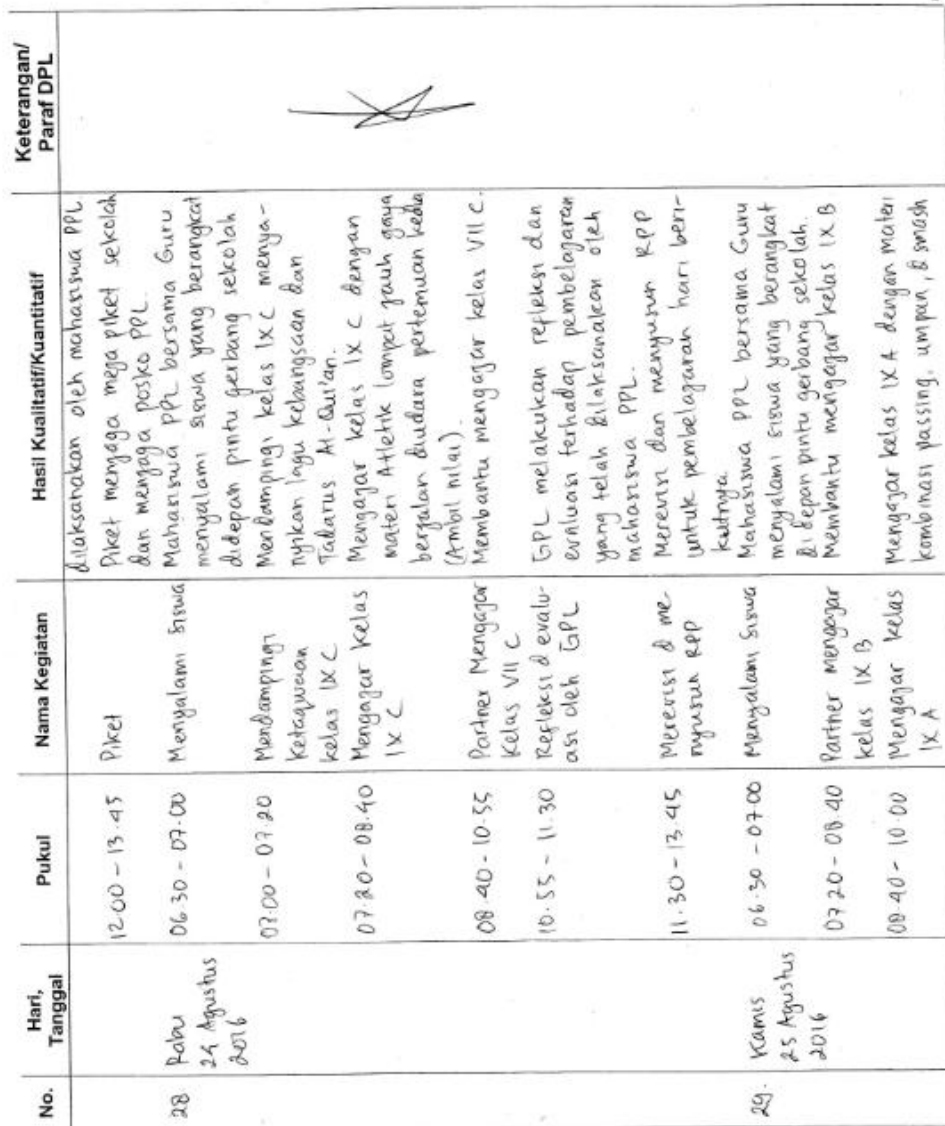 No.
Hari,
Tanggal
Pukul
Nama Kegiatan
Hasil Kualitatif/Kuantitatif
Keterangan/
Paraf DPL
dilaksanakan oleh mahasiswa PPL
12.00 – 13.45
Piket
Piket menjaga meja piket sekolah
dan menjaga posko PPL.
28
Rabu
24 Agustus
2016
06.30 – 07.00
Menyalami siswa
Mahasiswa PPL bersama Guru
menyalami siswa yang berangkat
didepan pintu gerbang sekolah
07.00 – 07.20
Mendampingi
Ketaqwaan
Kelas IX C
Mendampingi kelas IX C menya-
nyikan lagu kebangsaan dan
Tadarus Al-Qur'an.
07.20 – 08.40
Mengajar Kelas
IX C
Mengajar kelas IX C dengan
materi Atletik lompat jauh gaya
berjalan diudara pertemuan kedua
(Ambil nilai).
08.40 – 10.55
Partner Mengajar
Kelas VII C
Membantu mengajar kelas VII C.
10.55 – 11.30
Refleksi & evalu-
asi oleh GPL
GPL melakukan refleksi dan
evaluasi terhadap pembelajaran
yang telah dilaksanakan oleh
mahasiswa PPL.
11.30 – 13.45
Merevisi & me-
nyusun RPP
Merevisi dan menyusun RPP
untuk pembelajaran hari beri-
kutnya
29.
Kamis
25 Agustus
2016
06.30 – 07.00
Menyalami Siswa
Mahasiswa PPL bersama Guru
menyalami siswa yang berangkat
di depan pintu gerbang sekolah.
07.20 – 08.40
Partner mengajar
kelas IX B
Membantu mengajar kelas IX B
08.40 – 10.00
Mengajar kelas
IX A
Mengajar kelas IX A dengan materi
kombinasi passing, umpan, & smash